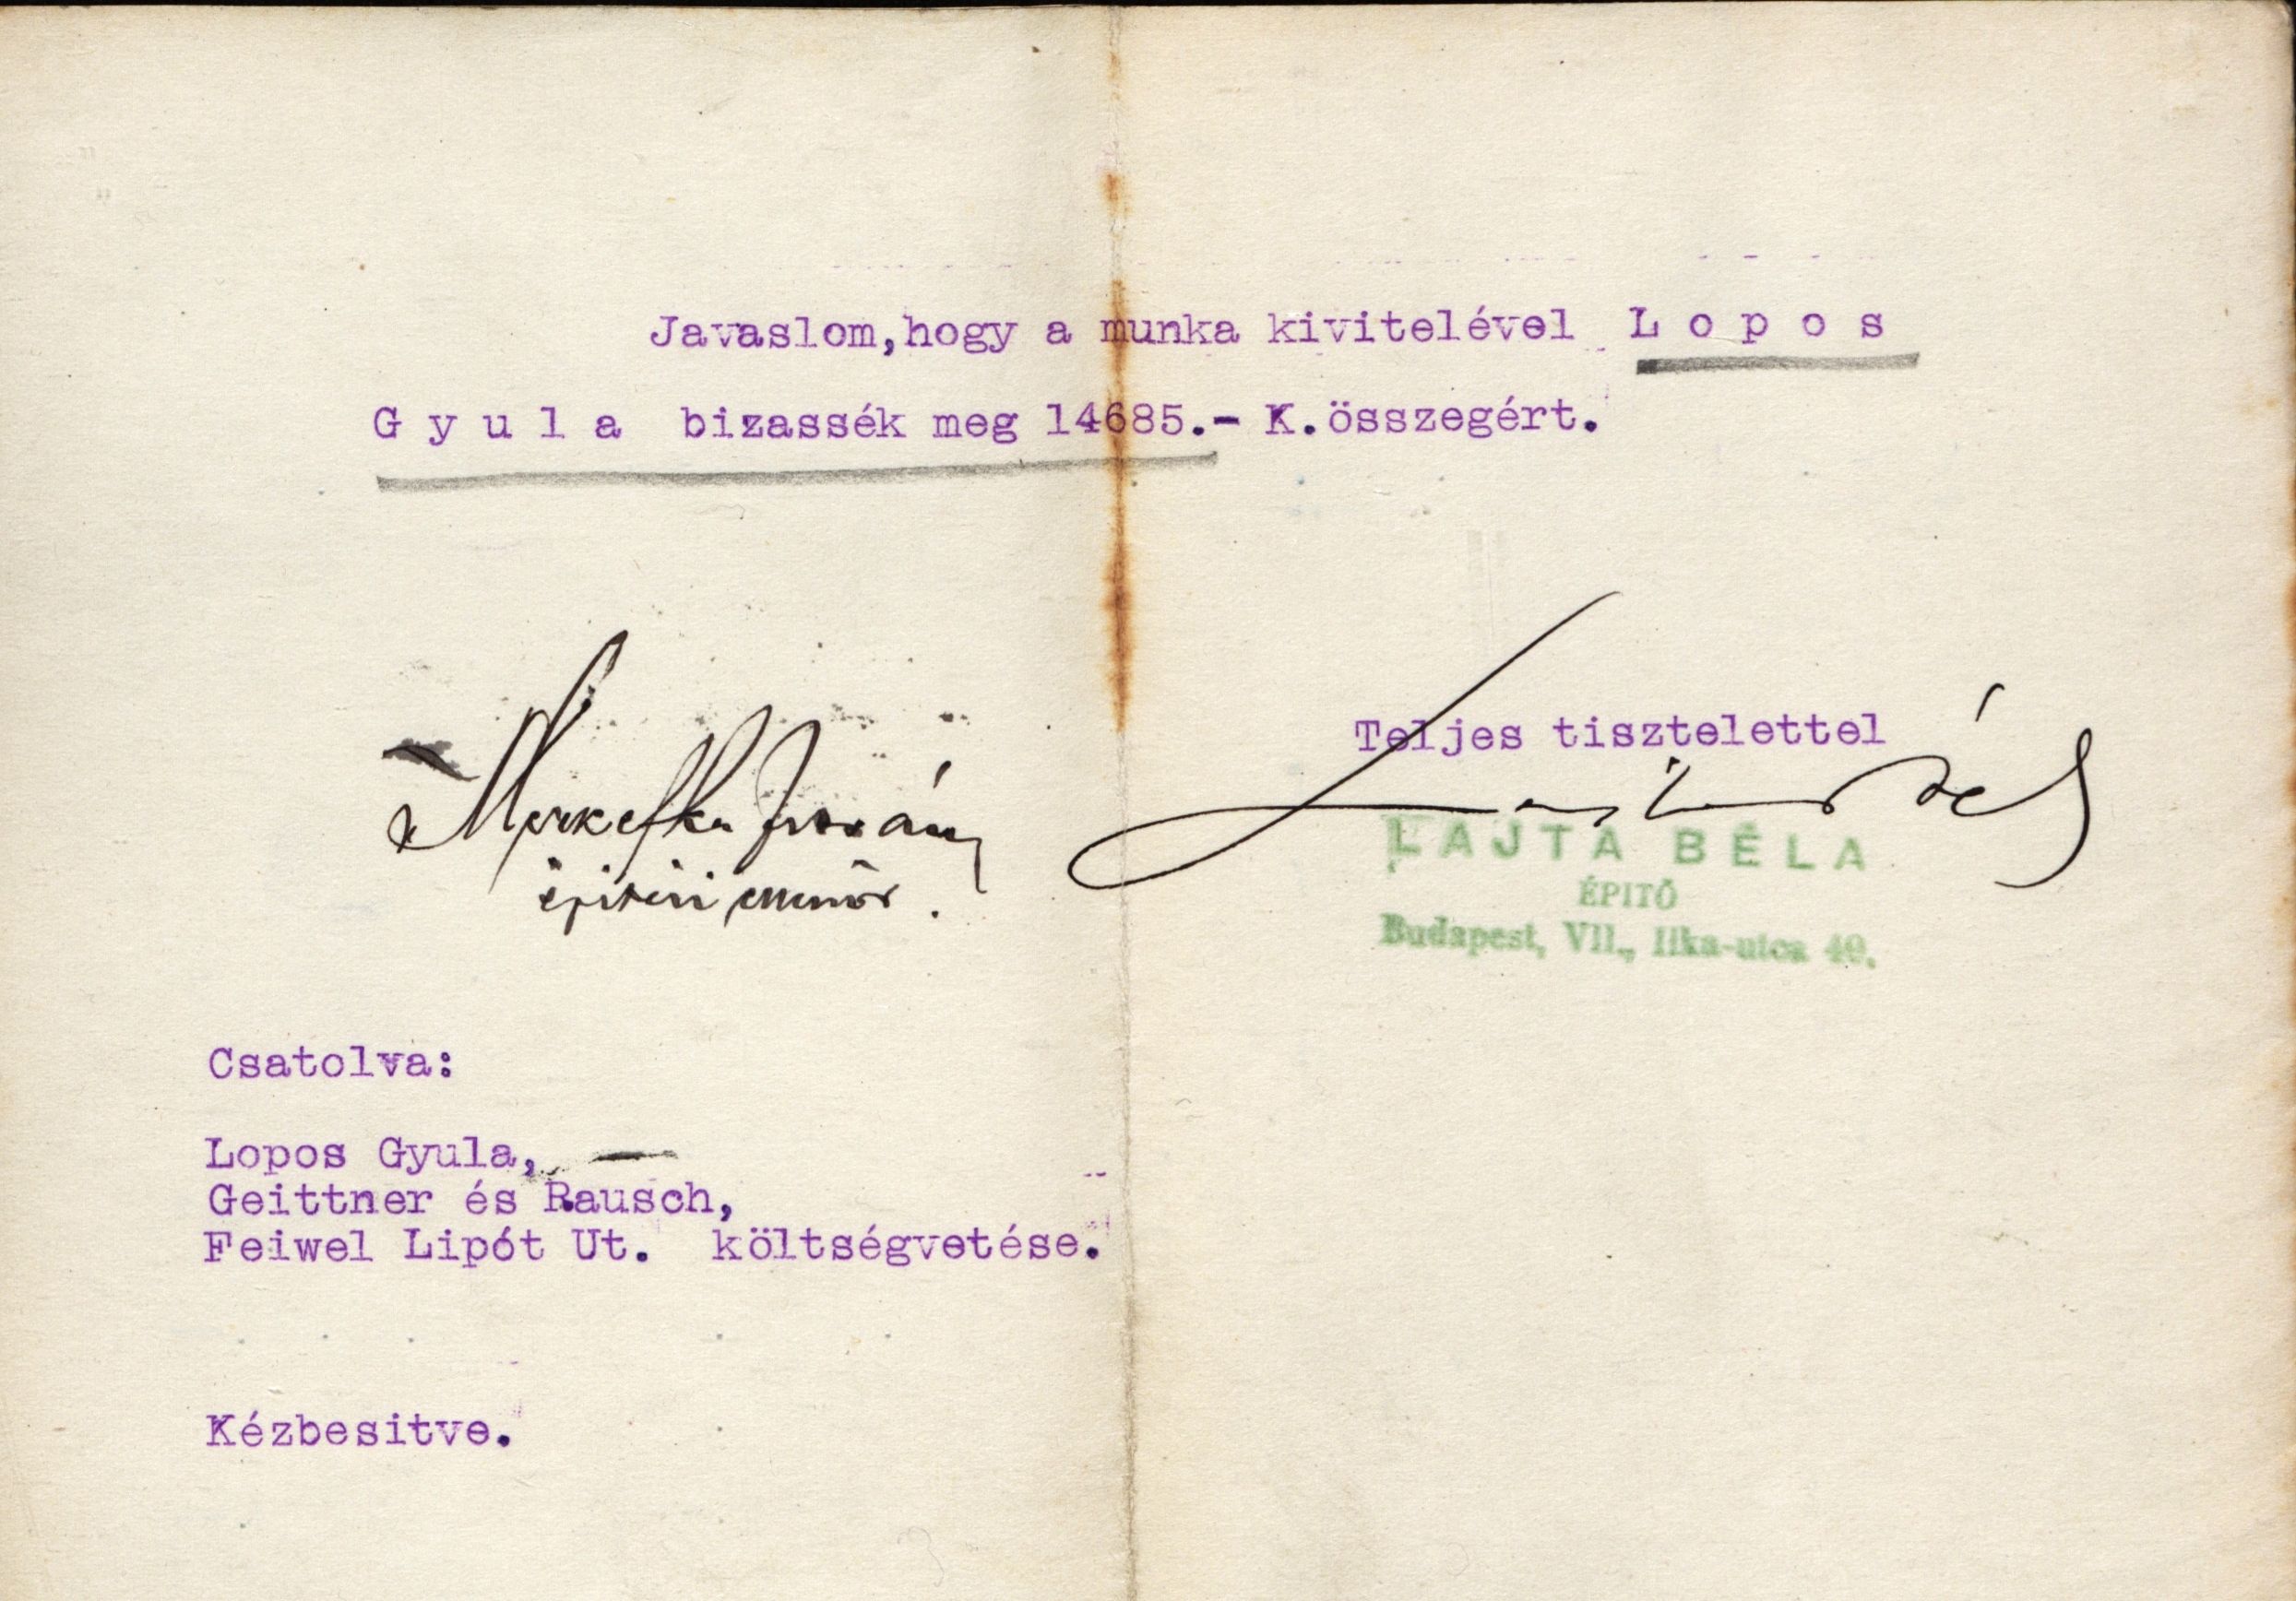 Javaslom,hogy a munka kivitelével L o p o s
G y u l a bizassék meg 14685.- K.összegért.
Teljes tisztelettel
LAJTA BÉLA
ÉPITŐ
Budapest, VII., Ilka-utca 40.
építési ellenőr.
Csatolva:
Lopos Gyula,
Geittner és Rausch,
Feiwel Lipót Ut. költségvetése.
Kézbesitve.